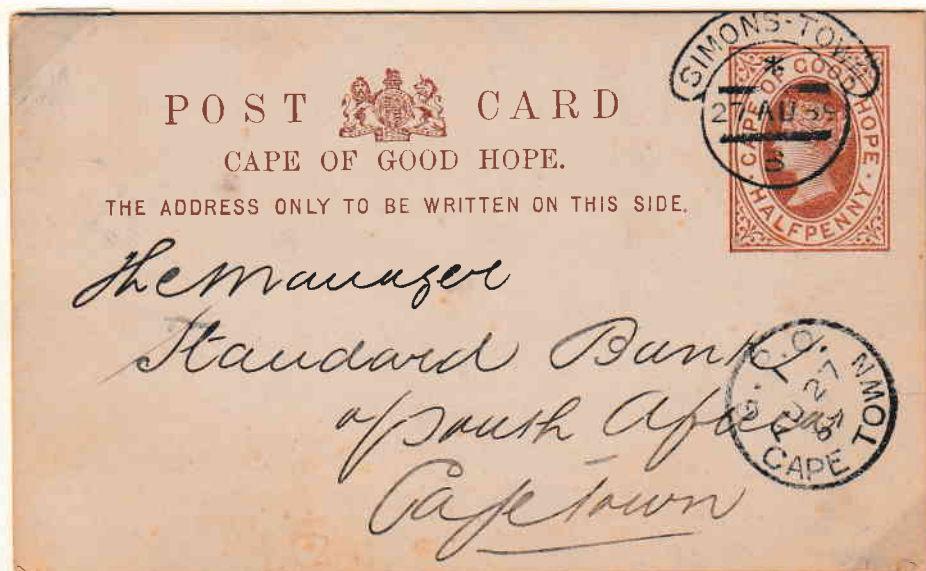 POST CARD
CAPE OF GOOD HOPE.
THE ADDRESS ONLY TO BE WRITTEN ON THIS SIDE.
SIMONS-TOWN
27 AU 89
S
CAPE OF GOOD HOPE
HALFPENNY
The Manager
Standard Bank
of South Africa
Cape Town
G.P.O.
AU 27
CAPE TOWN